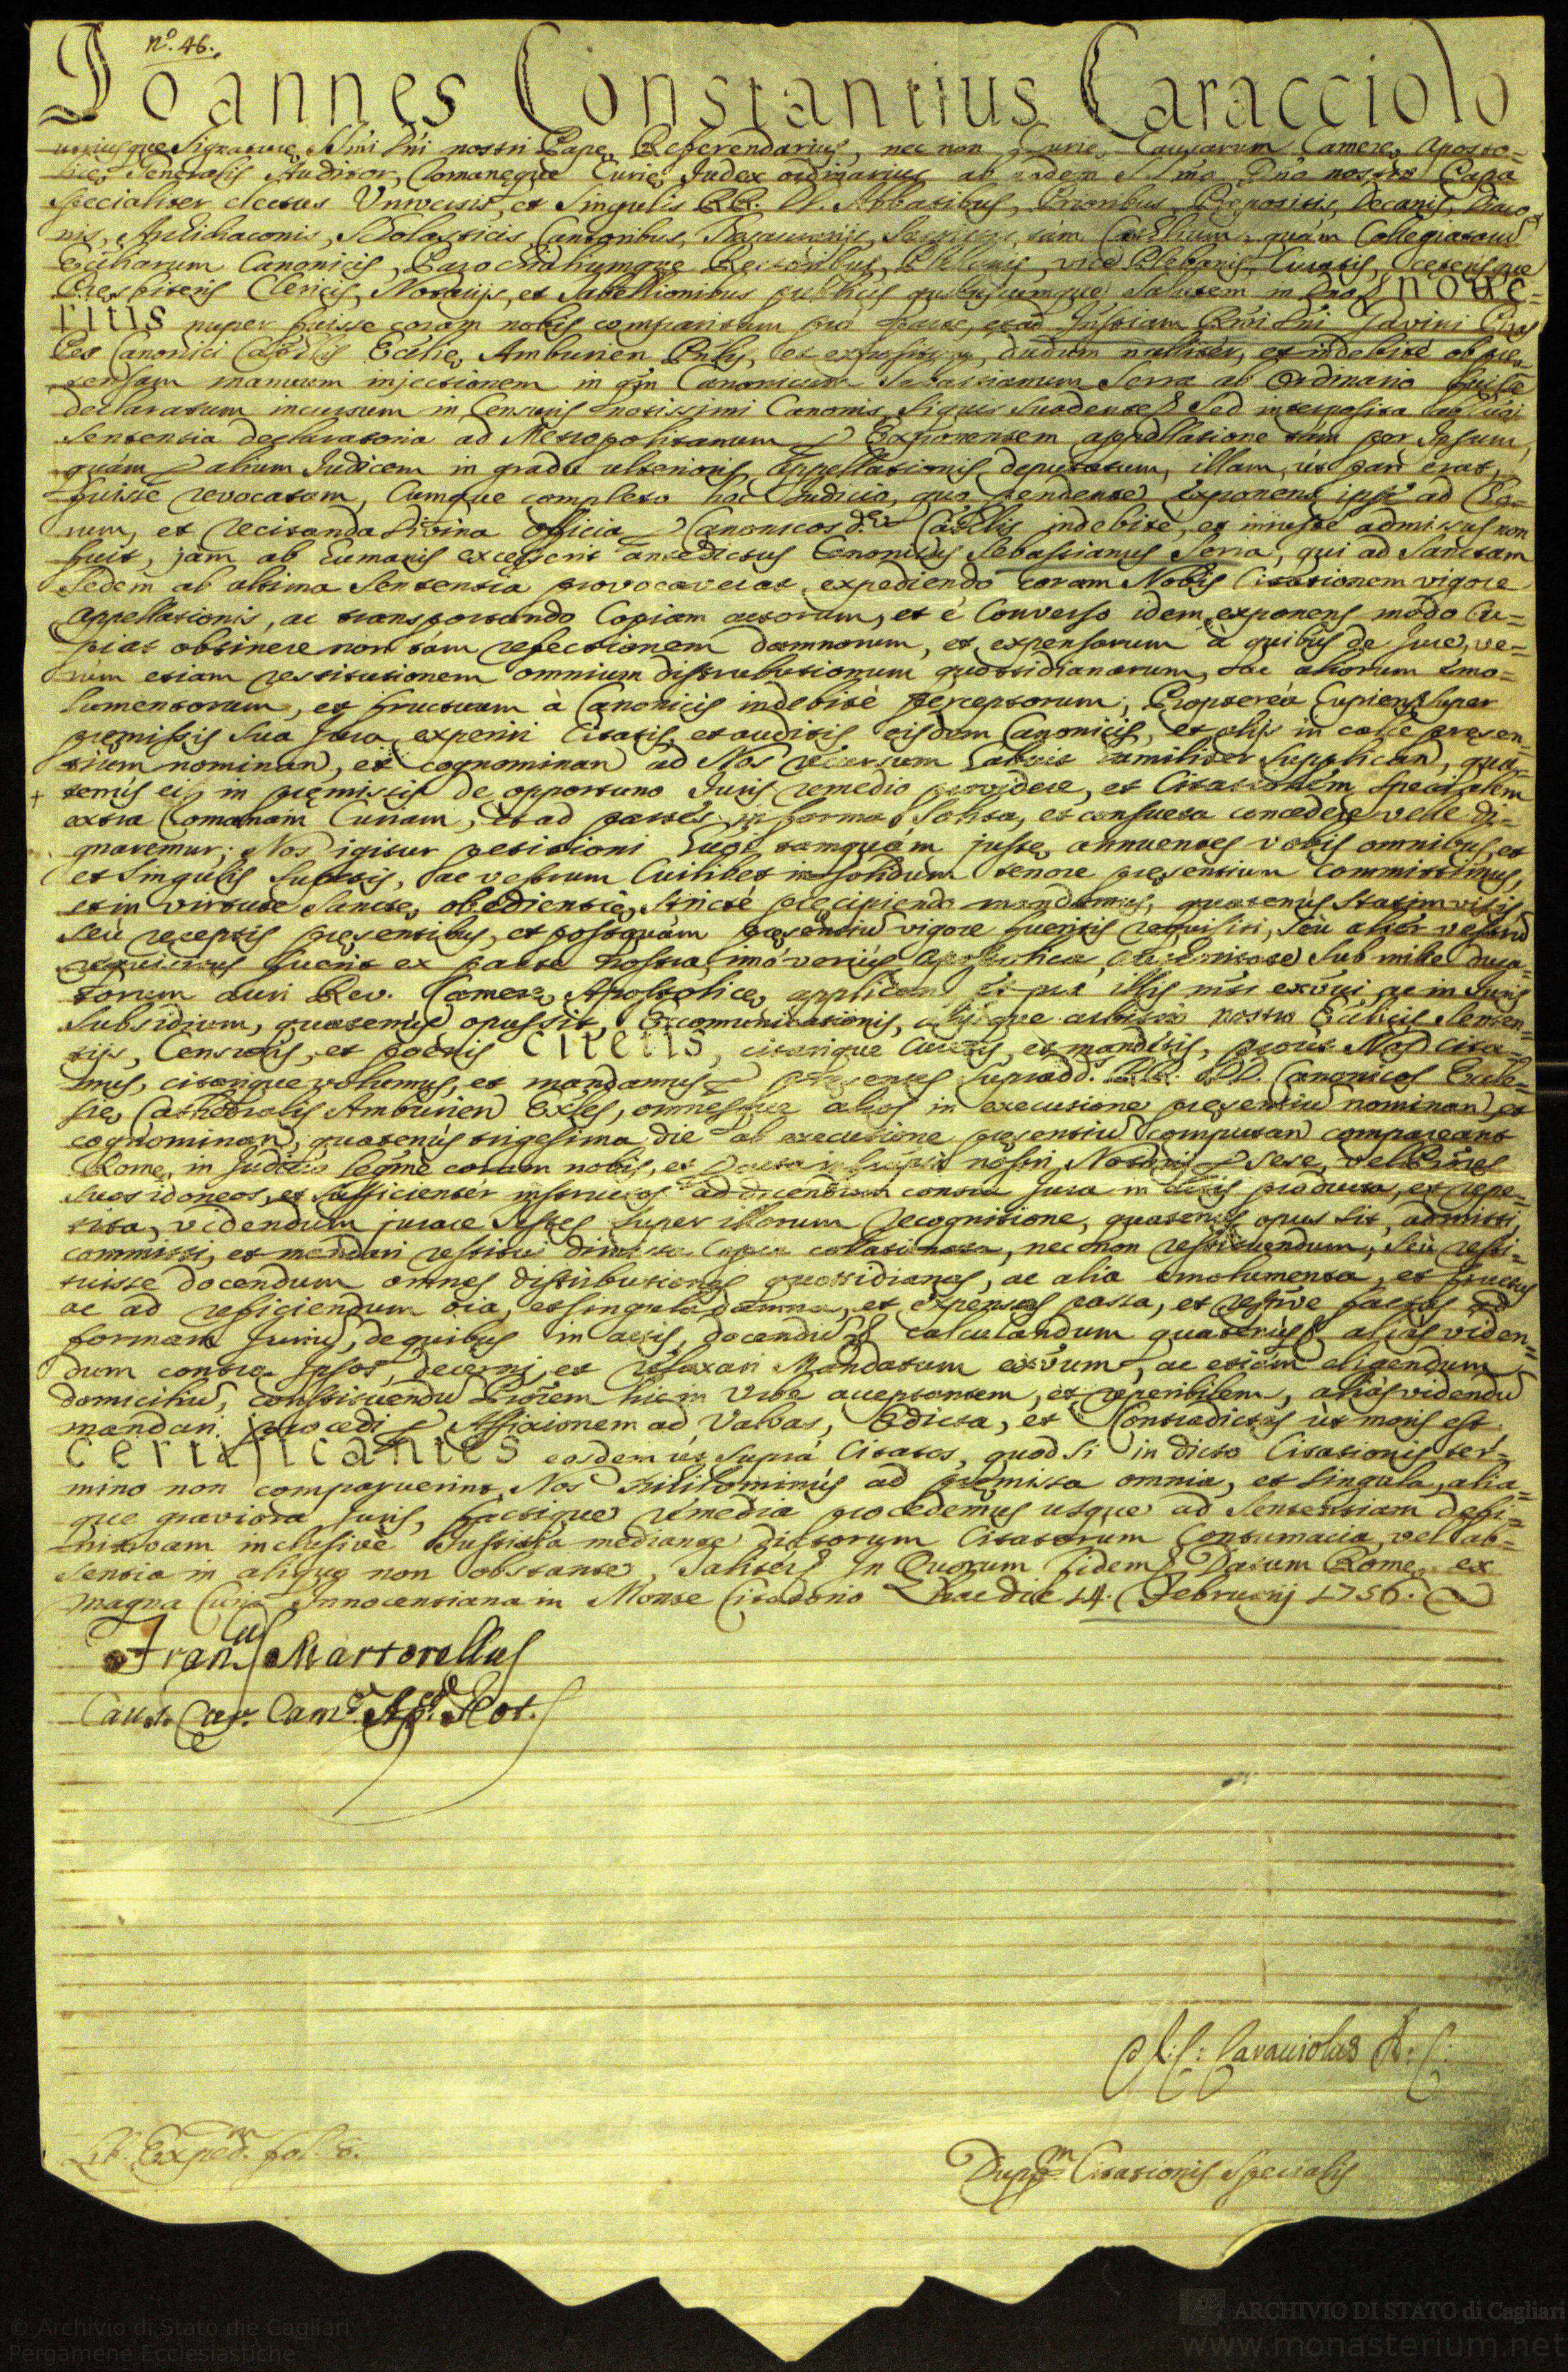 nº. 46.
Joannes Constantius Caracciolo
utriusque Signature Sñmi Dñi nostri Pape Referendarius, nec non Curie Causarum Camere Aposto=
lice Generalis Auditor, Romaneque Curie Judex ordinarius ab eodem SSmo Dño nostro Papa
specialiter electus Universis, et Singulis RR. DD. Abbatibus, Prioribus Prepositis, Decanis, Diaco
nis, Archidiaconis, Scholasticis, Cantoribus, Thesaurarijs, tam Cathlium, quàm Collegiatarũ
Ecclîarum Canonicis, Parochialiumque Rectoribus, Plebanis, vice Plebanis, Curatis, Ceterisque
Presbiteris Clericis, Notarijs, et Tabellionibus publicis quibuscumque Salutem in Dño nove=
ritis nuper fuisse coram nobis comparitum pro parte, et ad Instiam Rm̃i Dñi Gavini
Canonici Cathlis Ecclie Ampurien et expositum, dudum nulliter, et indebitè ob pre=
tensam manuum injectionem in qm̃ Canonicum Sebastianum Serra ab Ordinario fuisse
declaratum incursum in Censuris notissimi Canonis, Siquis Suadente Sed interposita ab
Sententia declaratoria ad Metropolitanum Exponentem appellatione tàm per Ipsum,
quàm alium Judicem in gradu ulterioris Appellationis deputatum, illam, ùt pari erat,
fuisse revocatam, Cumque completo hoc Judicio, quo pendente Exponens ipse ad Cho=
rum, et recitanda Divina officia Canonicos d. Cathlis indebitè, et iniustè admissus non
fuit, jam ab humanis excesserit antedictus Canonicus Sebastianus Serra, qui ad Sanctam
Sedem ab ultima Sententia provocaverat, expediendo coram Nobis Citationem vigore
Appellationis, ac transportando Copiam actorum, et è Converso idem exponens modo Cu=
piat obtinere non tàm refectionem damnorum, et expensarum à quibus de jure, ve=
rùm etiam restitutionem omnium distributionum quottidianarum, ac aliorum Emo=
lumentorum, et fructuum à Canonicis indebitè perceptorum; Propterea Cupiens Super
premissis Sua Jura experiri Citatis, et auditis eisdem Canonicis, et alijs in calce presen=
tium nominan, et cognominan ad Nos recursum habuit humiliter Supplican, qua=
tenùs ei in premissis de opportuno Juris remedio providere, et Citationem Specialem
extra Romanam Curiam, et ad partes in forma Solita, et consueta concedere velle di=
gnaremur; Nos igitur petitioni huic tamquàm juste annuentes vobis omnibus, et
et Singulis Suptis, ac vestrum Cuilibet in Solidum tenore presentium committimus,
et in virtute Sancte obedientie, Strictè precipiendo mandamus, quatenùs Statim visis,
Seù receptis presentibus, et postquàm presentiũ vigore fueritis requisiti, Seù alter vestrũ
requisitus fuerit ex parte nostra, imò veriùs Apostolica auctoritate Sub mille duca=
torum auri Rev. Camere Apostolice applican et per illis nisi exẽui, ac in Juris
Subsidium, quatenùs opus Sit, Excomunicationis, alijsque arbitrio nostro Ecclicis Senten=
tijs, Censuris, et poenis citetis, citarique curetis, et mandetis, prout Nos cita=
mus, citarique volumus, et mandamus presentes Supradd. RR. DD. Canonicos Eccle=
sie Cathedralis Ampurien omnesque alios in executione presentiũ nominan, et
cognominan, quatenùs trigesima die ab executione presentiũ computan compareant
Rome, in Judicio legme coram nobis, et nostri Notarij Sese, vel
Suos idoneos, et Sufficientèr instructos ad dicendum contra Jura in actis producta, et repe=
tita, videndum jurare Testes Super illorum recognitione, quatenùs opus Sit, admitti,
commissi, et mandari restitui dimissa copia collationata, nec non restituendum, Seù resti=
tuisse docendum omnes distributiones quottidianas, ac alia emolumenta, et fructus
ac ad reficiendum oia, et Singula damna, et expensas passa, et respive factas ad
formam Jurium, de quibus in actis, docendũ calculandum quatenùs aliàs viden=
dum contra Ipsos, decerni, et relaxari Mandatum exũum, ac etiam eligendum
domiciliũ, constituendũ Procrem hic in Urbe acceptantem, et reperibilem, aliàs videndũ
mandari procedi Affixionem ad Valvas, Edicta, et Contradictas ùt moris est.
certificantes eosdem ùt Suprà Citatos, quod Si in dicto Citationis ter=
mino non comparuerint Nos nihilominùs ad premissa omnia, et Singula, alia=
que graviora Juris, factique remedia procedemus usque ad Sententiam defi=
nitivam inclusivè Justitia mediante dictorum Citatorum Contumacia, vel ab=
sentia in aliquo non obstante, Taliter In Quorum fidem Datum Rome ex
magna Curia Innocentiana in Monte Citatorio hac die 14. Februarij 1756.
Fran.cus Martorellus
Caus. Cur. Cam. Ap. Not.
J: C: Caracciolus A: C:
Lib. Exped.m fol. 8.
Citationis Specialis
© Archivio di Stato die Cagliari
Pergamene Ecclesiastiche
ARCHIVIO DI STATO di Cagliari
www.monasterium.net